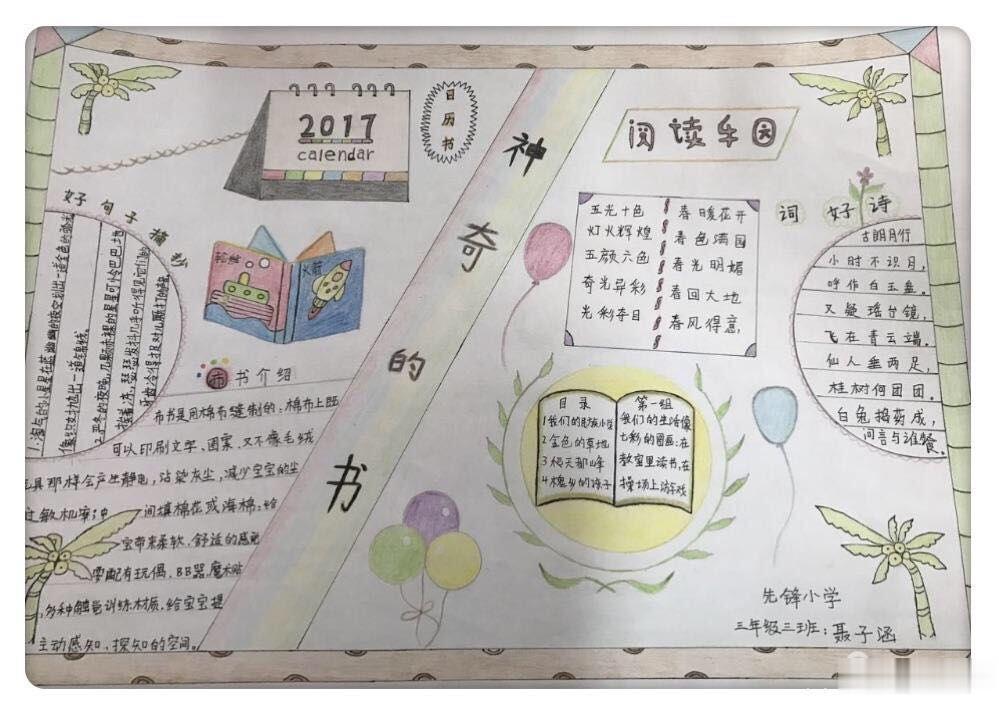 2017
calendar
日历书
神奇的书
阅读乐园
好句子摘抄
1.淘气的小星星在蓝幽幽的夜空划出一道金色的弧线
像织女抛出一道锦线。
2.严冬的夜晚,几颗赤裸的星星可怜巴巴地
挨着冻,瑟瑟发抖,几乎听得见它们的
牙齿冷得捉对儿厮打的声音。
轮船
火箭
布书介绍
布书是用棉布缝制的,棉布上既
可以印刷文字、图案,又不像毛绒
玩具那样会产生静电,沾染灰尘,减少宝宝的尘
过敏机率;中间填棉花或海棉,给
宝带来柔软、舒适的感觉
要配有玩偶、BB器,魔术贴
多种触觉训练材质,给宝宝提
主动感知,探知的空间。
五光十色
灯火辉煌
五颜六色
奇光异彩
光彩夺目
春暖花开
春色满园
春光明媚
春回大地
春风得意
目录
1我们的民族小学
2金色的草地
3爬天都峰
4槐乡的孩子
第一组
我们的生活像
七彩的图画:在
教室里读书,在
操场上游戏
词好诗
古朗月行
小时不识月,
呼作白玉盘。
又疑瑶台镜,
飞在青云端。
仙人垂两足,
桂树何团团。
白兔捣药成,
问言与谁餐。
先锋小学
三年级三班:聂子涵